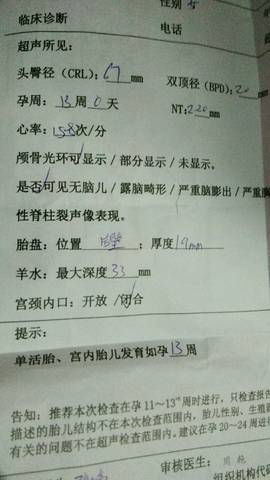 性别
临床诊断 电话
超声所见:
头臀径(CRL):67mm 双顶径(BPD):20
孕周:13周0天 NT:2.20mm
心率:158次/分
颅骨光环可显示/部分显示/未显示。
是否可见无脑儿/露脑畸形/严重脑膨出/严重胸
性脊柱裂声像表现。
胎盘:位置 ;厚度19mm
羊水:最大深度33mm
宫颈内口:开放/闭合
提示:
单活胎、宫内胎儿发育如孕13周
告知:推荐本次检查在孕11~13⁺⁶周时进行,只检查报告
描述的胎儿结构不在本次检查范围内,胎儿性别、生殖器
有关的问题不在超声检查范围内。建议在孕20~24周进行
审核医生:
组织机构代码